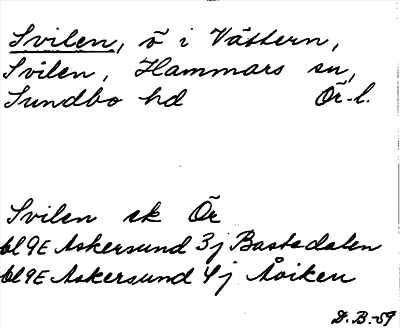 Svilen, ö i Vättern,
Svilen, Hammars sn,
Sundbo hd Ör.l.
Svilen ek Ör
bl 9E Askersund 3j Bastedalen
bl 9E Askersund 4j Åviken
D.B.-59